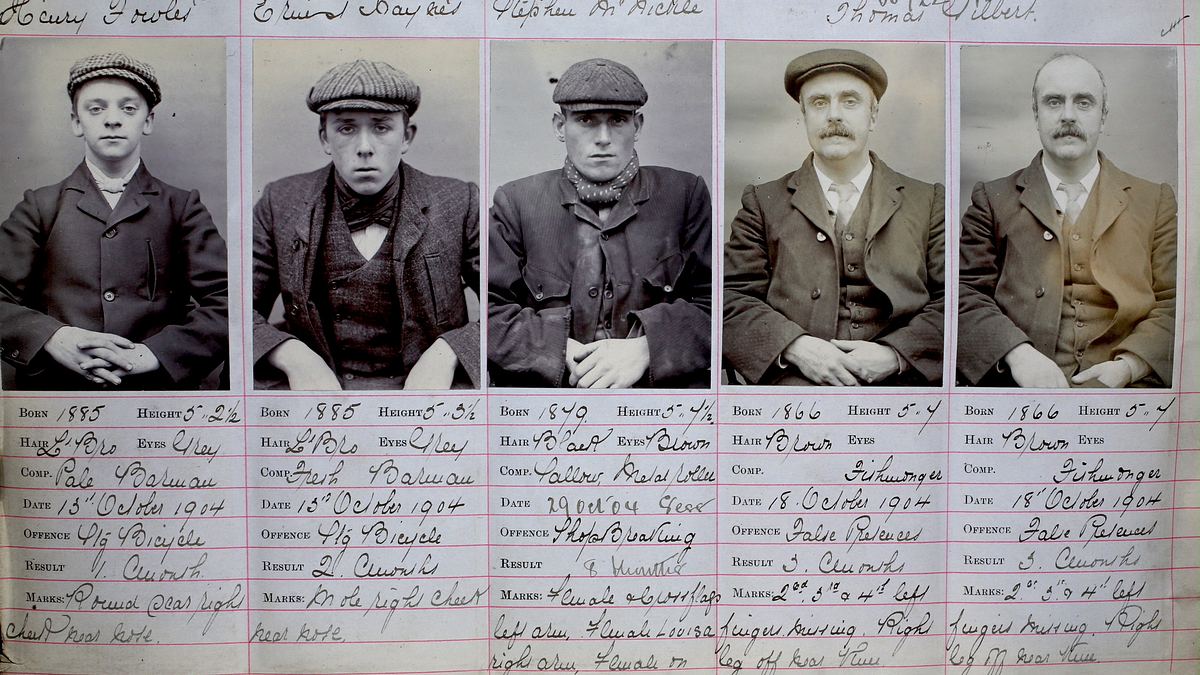 Henry Fowles Ernest Haynes Stephen McNickle Thomas Gilbert.
BORN 1885 HEIGHT 5..2½ BORN 1885 HEIGHT 5..3½ BORN 1879. HEIGHT 5..7½. BORN 1866 HEIGHT 5..7 BORN 1866 HEIGHT 5..7
HAIR Lt Bro EYES Grey HAIR Lt Bro EYES Grey HAIR Black EYES Brown HAIR Brown EYES HAIR Brown EYES
COMP. Pale Barman COMP. Fresh Barman COMP. Sallow Metal roller COMP. Fishmonger COMP. Fishmonger
DATE 13th October 1904 DATE 13th October 1904 DATE 29 Oct 04 Sess DATE 18 October 1904 DATE 18th October 1904
OFFENCE Stg Bicycle OFFENCE Stg Bicycle OFFENCE ShopBreaking OFFENCE False Pretences OFFENCE False Pretences
RESULT 1. Cmonth. RESULT 2. Cmonths RESULT 8 months RESULT 3. Cmonths RESULT 3. Cmonths
MARKS: Round Scar right MARKS: Mole right cheek MARKS: Female & Crossflags MARKS: 2nd, 3rd & 4th left MARKS: 2nd 3rd & 4th left
cheek near nose. near nose. left arm, Female Louisa fingers missing. Right fingers missing. Right
right arm, Female on leg off near Knee leg off near Knee.